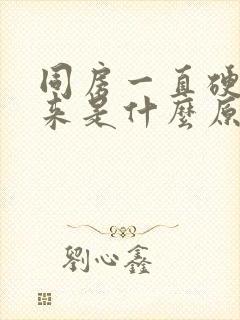 同房一直硬
来是什麼原
劉心鑫